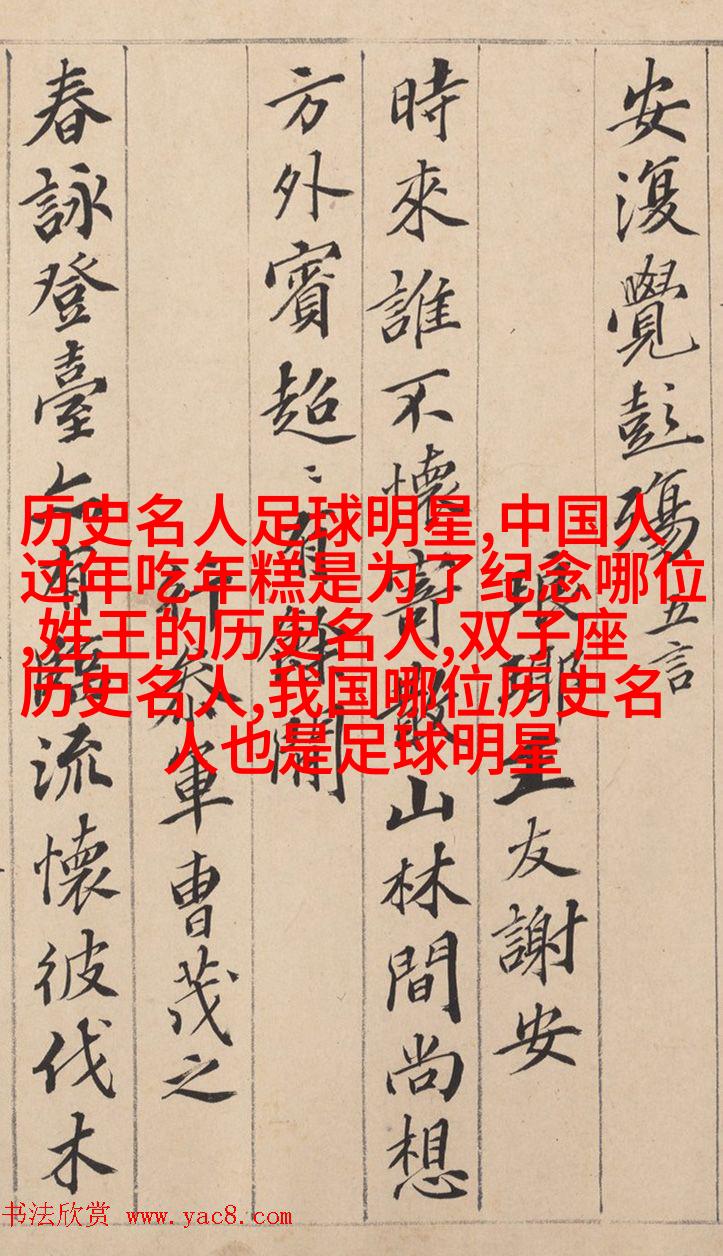 安復覺彭殤五言
琅邪王友謝安
時來誰不懷寄散山林間尚想
方外賓超〻有餘閑
行參軍曹茂之
春詠登臺亦有臨流懷彼伐木
历史名人足球明星,中国人
过年吃年糕是为了纪念哪位
,姓王的历史名人,双子座
历史名人,我国哪位历史名
人也是足球明星
书法欣赏 www.yac8.com